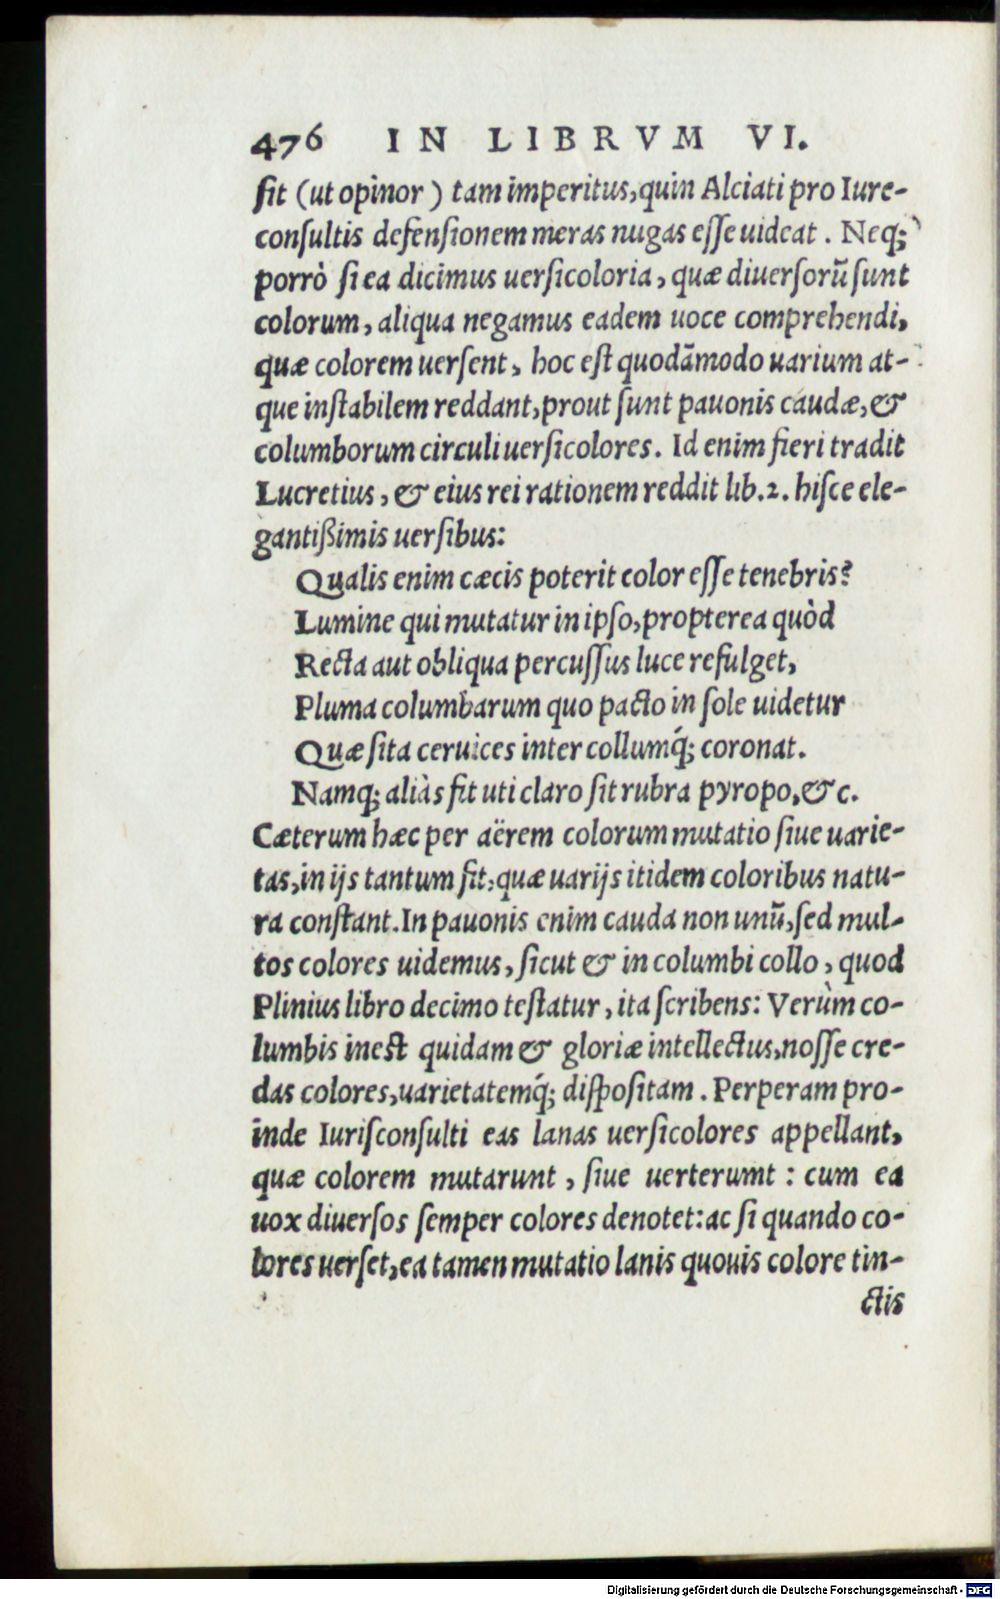 476 IN LIBRVM VI.
ſit (ut opinor) tam imperitus, quin Alciati pro Iure-
conſultis defenſionem meras nugas eſſe uideat. Neq;
porrò ſi ea dicimus uerſicoloria, quæ diuerſorū ſunt
colorum, aliqua negamus eadem uoce comprehendi,
quæ colorem uerſent, hoc eſt quodāmodo uarium at-
que inſtabilem reddant, prout ſunt pauonis caudæ, &
columborum circuli uerſicolores. Id enim fieri tradit
Lucretius, & eius rei rationem reddit lib.2. hiſce ele-
gantißimis uerſibus:
Qualis enim cæcis poterit color eſſe tenebris?
Lumine qui mutatur in ipſo, propterea quòd
Recta aut obliqua percuſſus luce refulget,
Pluma columbarum quo pacto in ſole uidetur
Quæ ſita ceruices inter collumq́; coronat.
Namq; aliàs fit uti claro ſit rubra pyropo, &c.
Cæterum hæc per aërem colorum mutatio ſiue uarie-
tas, in ijs tantum fit, quæ uarijs itidem coloribus natu-
ra conſtant. In pauonis enim cauda non unū, ſed mul-
tos colores uidemus, ſicut & in columbi collo, quod
Plinius libro decimo teſtatur, ita ſcribens: Verùm co-
lumbis ineſt quidam & gloriæ intellectus, noſſe cre-
das colores, uarietatemq́; diſpoſitam. Perperam pro-
inde Iuriſconſulti eas lanas uerſicolores appellant,
quæ colorem mutarunt, ſiue uerterumt: cum ea
uox diuerſos ſemper colores denotet: ac ſi quando co-
lores uerſet, ea tamen mutatio lanis quouis colore tin-
ctis
Digitalisierung gefördert durch die Deutsche Forschungsgemeinschaft - DFG